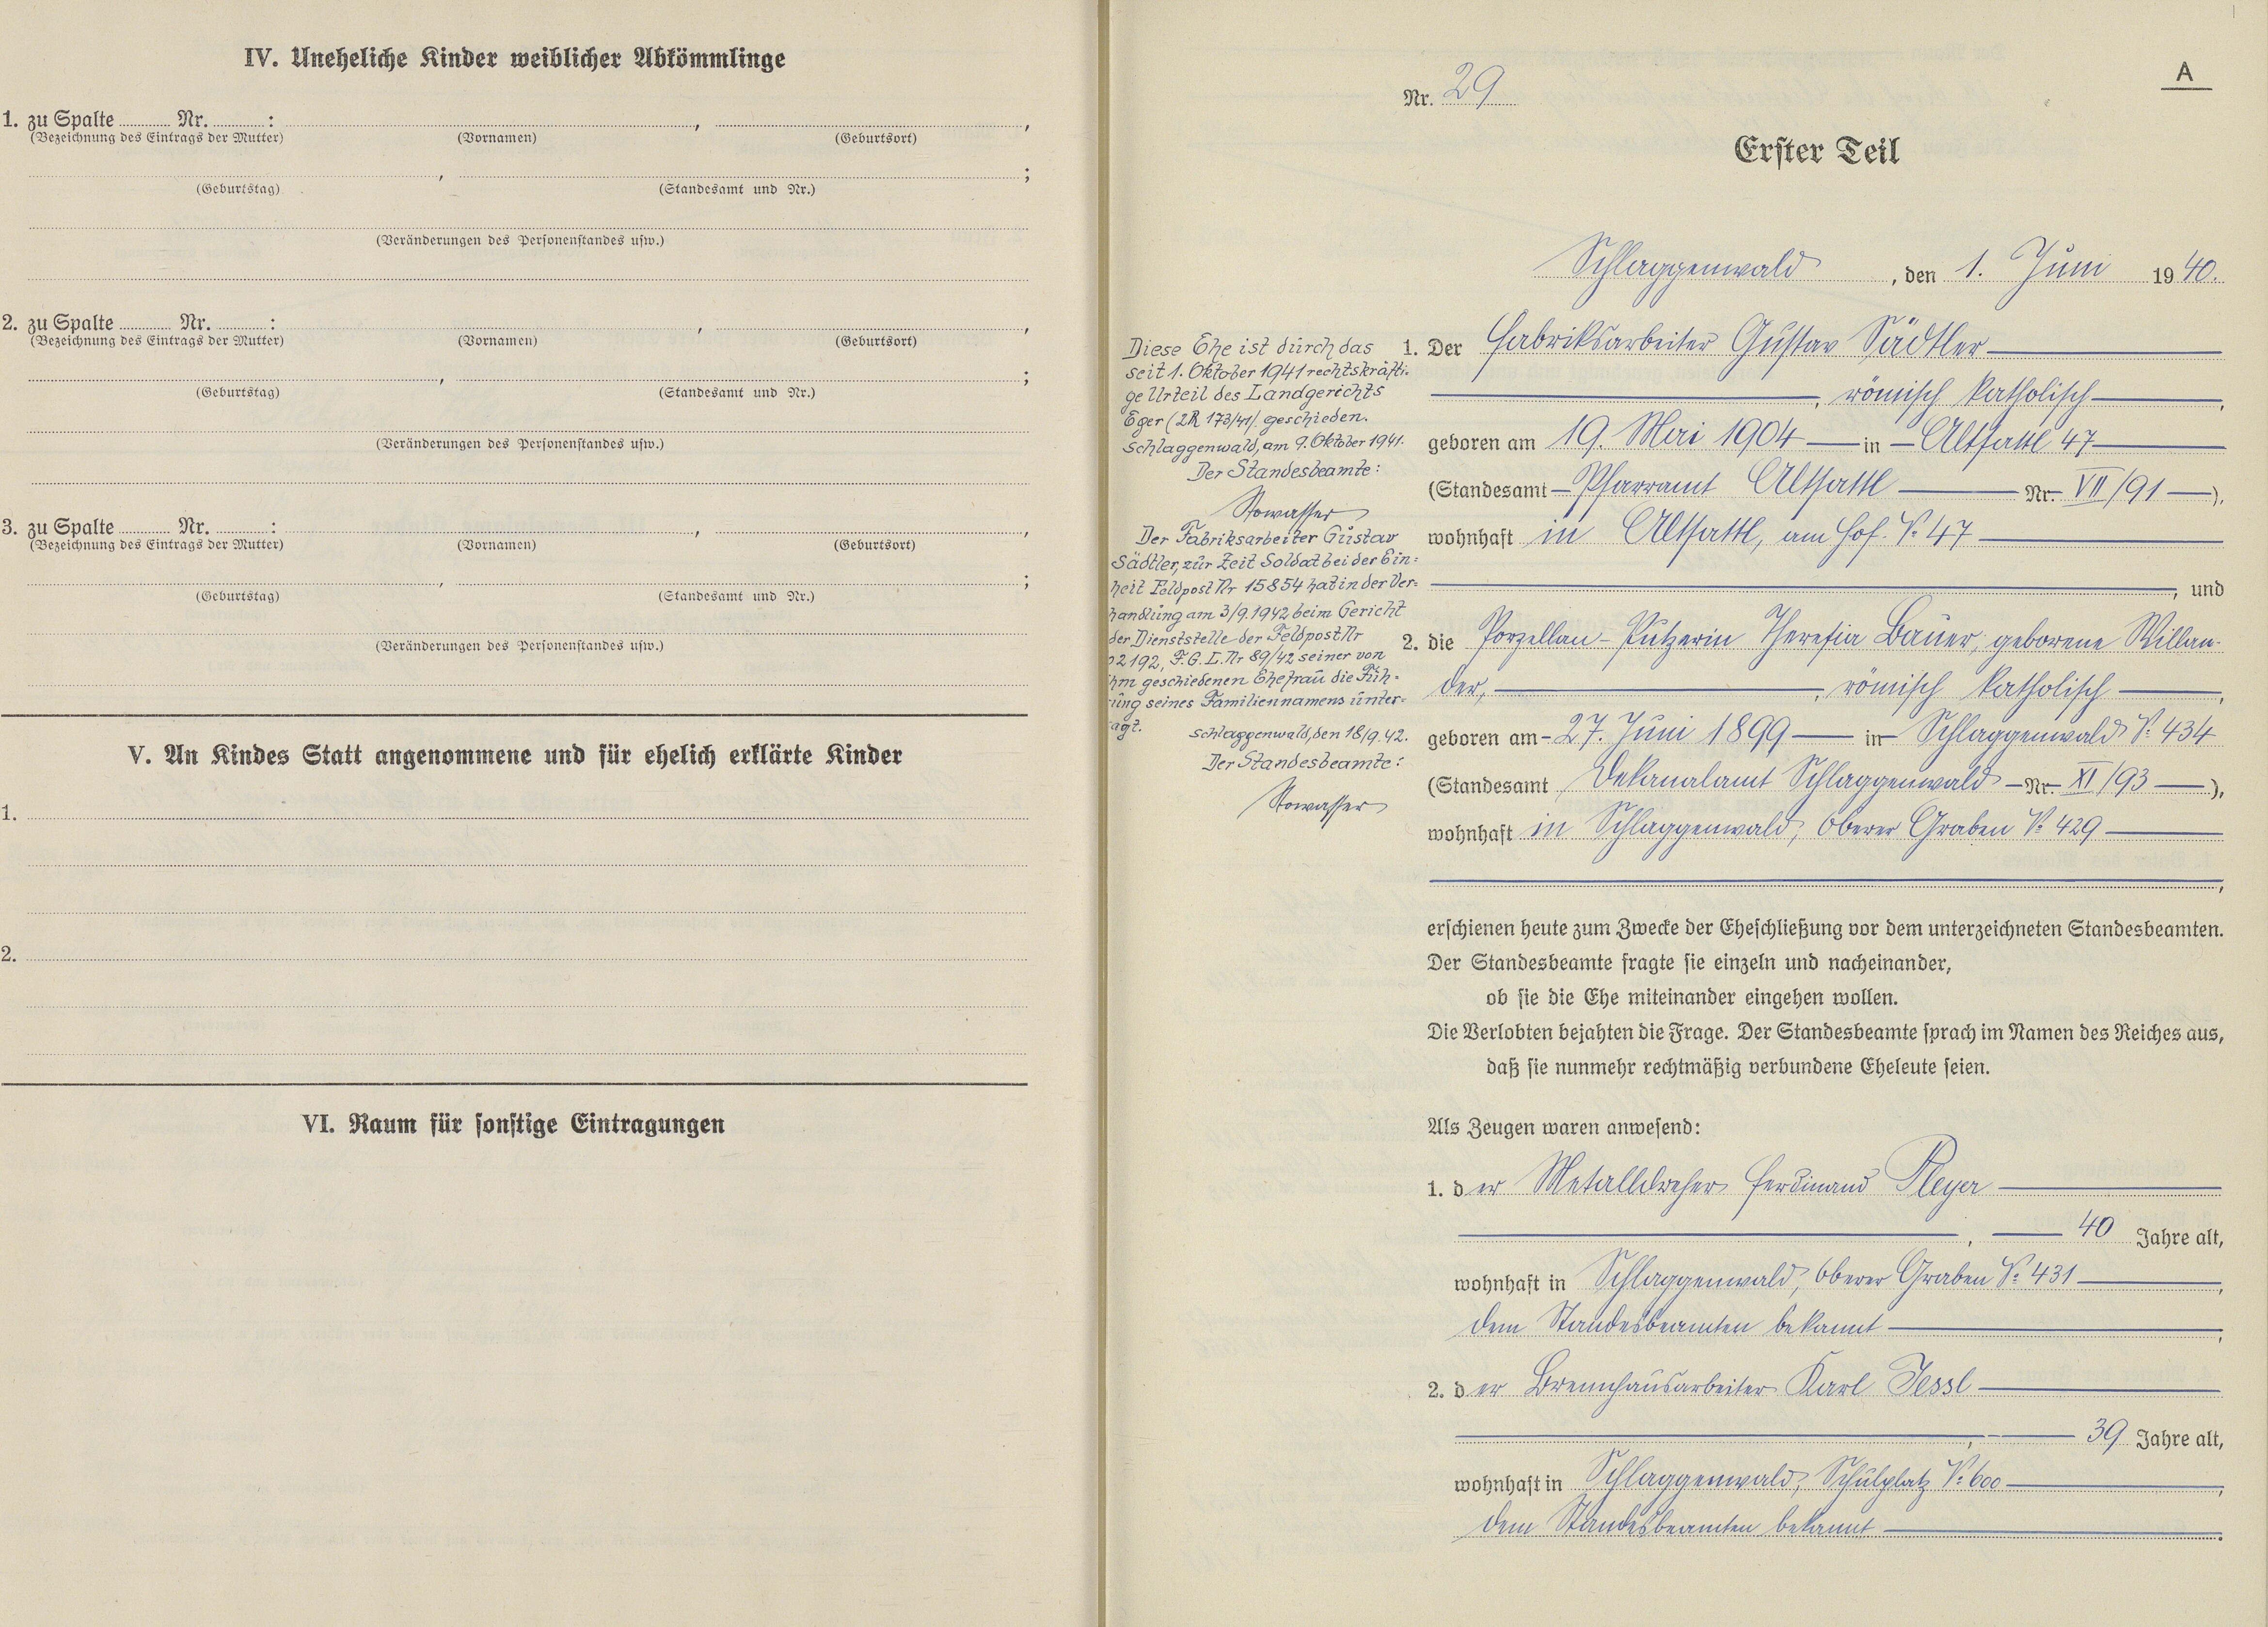 IV. Uneheliche Kinder weiblicher Abkömmlinge
1. zu Spalte ........ Nr. ........ : ........ , ........ ,
(Bezeichnung des Eintrags der Mutter) (Vornamen) (Geburtsort)
........ , ........ ;
(Geburtstag) (Standesamt und Nr.)
(Veränderungen des Personenstandes usw.)
2. zu Spalte ........ Nr. ........ : ........ , ........ ,
(Bezeichnung des Eintrags der Mutter) (Vornamen) (Geburtsort)
........ , ........ ;
(Geburtstag) (Standesamt und Nr.)
(Veränderungen des Personenstandes usw.)
3. zu Spalte ........ Nr. ........ : ........ , ........ ,
(Bezeichnung des Eintrags der Mutter) (Vornamen) (Geburtsort)
........ , ........ ;
(Geburtstag) (Standesamt und Nr.)
(Veränderungen des Personenstandes usw.)
V. An Kindes Statt angenommene und für ehelich erklärte Kinder
1.
2.
VI. Raum für sonstige Eintragungen
A
Nr. 29
Erster Teil
Schlaggenwald , den 1. Juni 1940.
Diese Ehe ist durch das
seit 1. Oktober 1941 rechtskräfti-
ge Urteil des Landgerichts
Eger (2R 173/41). geschieden.
Schlaggenwald, am 9. Oktober 1941.
Der Standesbeamte:
Stowasser
Der Fabriksarbeiter Gustav
Sädtler, zur Zeit Soldat bei der Ein=
heit Feldpost Nr 15854 hat in der Ver=
handlung am 3/9.1942 beim Gericht
der Dienststelle der Feldpost Nr
02192, F.G.L. Nr 89/42 seiner von
ihm geschiedenen Ehefrau die Füh=
rung seines Familiennamens unter=
sagt.
Schlaggenwald, den 18/9.42.
Der Standesbeamte:
Stowasser
1. Der Fabriksarbeiter Gustav Sädtler
, römisch katholisch ,
geboren am 19. Mai 1904 in Altsattl 47
(Standesamt Pfarramt Altsattl Nr. VII/91 ),
wohnhaft in Altsattl, am Hof. No 47
, und
2. die Porzellan-Putzerin Theresia Bauer, geborene Willan-
der, , römisch katholisch ,
geboren am 27. Juni 1899 in Schlaggenwald No 434
(Standesamt Dekanalamt Schlaggenwald Nr. XI/93 ),
wohnhaft in Schlaggenwald, Oberer Graben No 429
,
erschienen heute zum Zwecke der Eheschließung vor dem unterzeichneten Standesbeamten.
Der Standesbeamte fragte sie einzeln und nacheinander,
ob sie die Ehe miteinander eingehen wollen.
Die Verlobten bejahten die Frage. Der Standesbeamte sprach im Namen des Reiches aus,
daß sie nunmehr rechtmäßig verbundene Eheleute seien.
Als Zeugen waren anwesend:
1. der Metalldreher Ferdinand Pleyer
, 40 Jahre alt,
wohnhaft in Schlaggenwald, Oberer Graben No 431 ,
dem Standesbeamten bekannt ,
2. der Brennhausarbeiter Karl Jessl
, 39 Jahre alt,
wohnhaft in Schlaggenwald, Schulplatz No 600 ,
dem Standesbeamten bekannt .